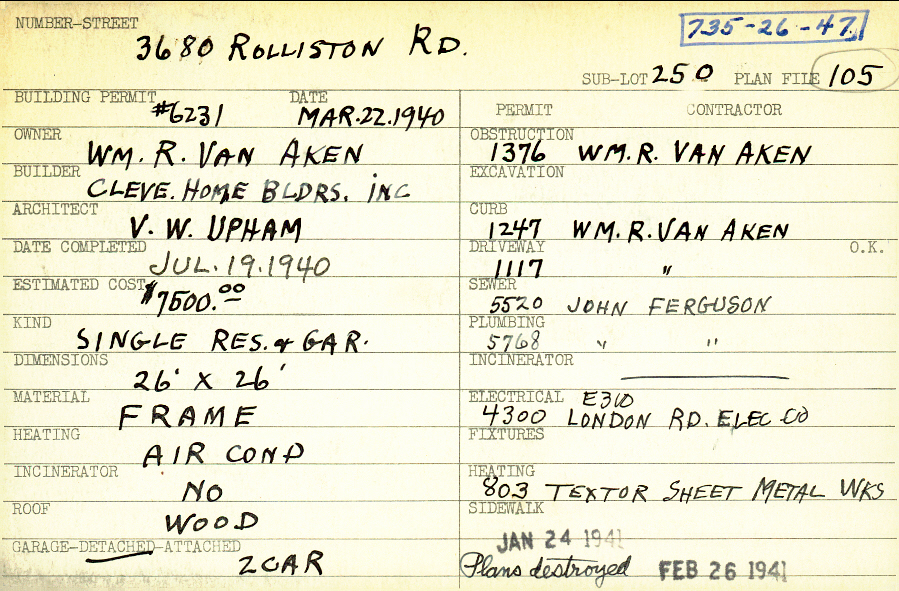 NUMBER-STREET
3680 ROLLISTON RD.
735-26-47
SUB-LOT 250 PLAN FILE 105
BUILDING PERMIT #6231 DATE MAR.22.1940
OWNER WM. R. VAN AKEN
BUILDER CLEVE. HOME BLDRS. INC
ARCHITECT V. W. UPHAM
DATE COMPLETED JUL. 19. 1940
ESTIMATED COST $7500.00
KIND SINGLE RES. & GAR.
DIMENSIONS 26' X 26'
MATERIAL FRAME
HEATING AIR COND
INCINERATOR NO
ROOF WOOD
GARAGE-DETACHED-ATTACHED 2 CAR
PERMIT CONTRACTOR
OBSTRUCTION 1376 WM. R. VAN AKEN
EXCAVATION
CURB 1247 WM. R. VAN AKEN
DRIVEWAY 1117 " O.K.
SEWER 5520 JOHN FERGUSON
PLUMBING 5768 " "
INCINERATOR
ELECTRICAL E310
4300 LONDON RD. ELEC CO
FIXTURES
HEATING 803 TEXTOR SHEET METAL WKS
SIDEWALK
JAN 24 1941
Plans destroyed FEB 26 1941